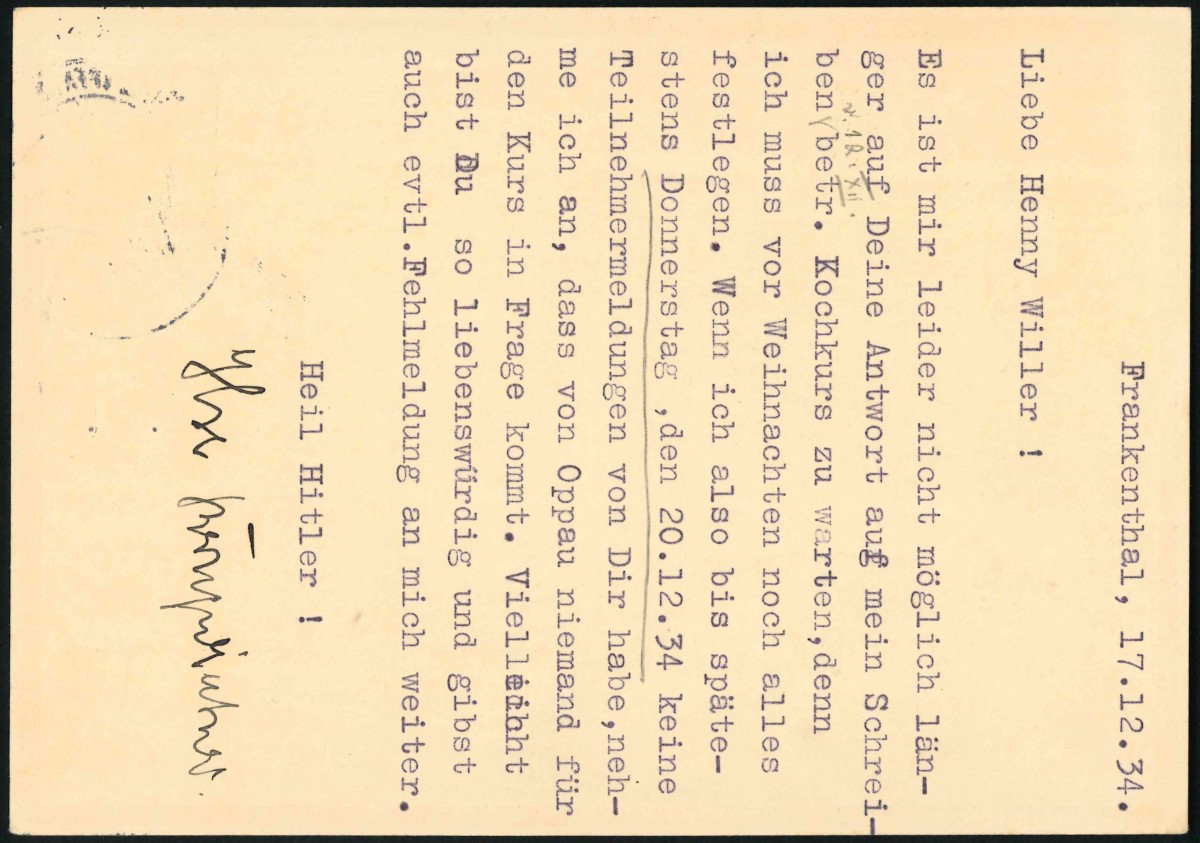 Frankenthal, 17.12.34.
Liebe Henny Willer !
Es ist mir leider nicht möglich län-
ger auf Deine Antwort auf mein Schrei-
v. 12. XII.
ben betr. Kochkurs zu warten,denn
ich muss vor Weihnachten noch alles
festlegen. Wenn ich also bis späte-
stens Donnerstag ,den 20.12.34 keine
Teilnehmermeldungen von Dir habe,neh-
me ich an, dass von Oppau niemand für
den Kurs in Frage kommt. Vielleicht
bist Du so liebenswürdig und gibst
auch evtl.Fehlmeldung an mich weiter.
Heil Hitler !
Ilse